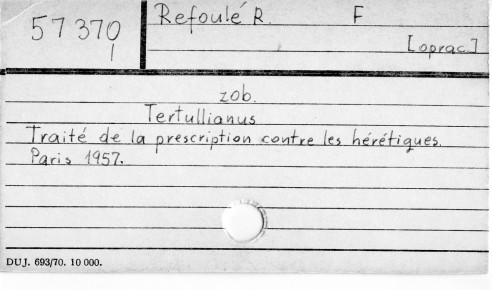 57370
I
Refoulé R. F
[oprac.]
zob.
Tertullianus
Traité de la prescription contre les hérétiques.
Paris 1957.
DUJ. 693/70. 10 000.